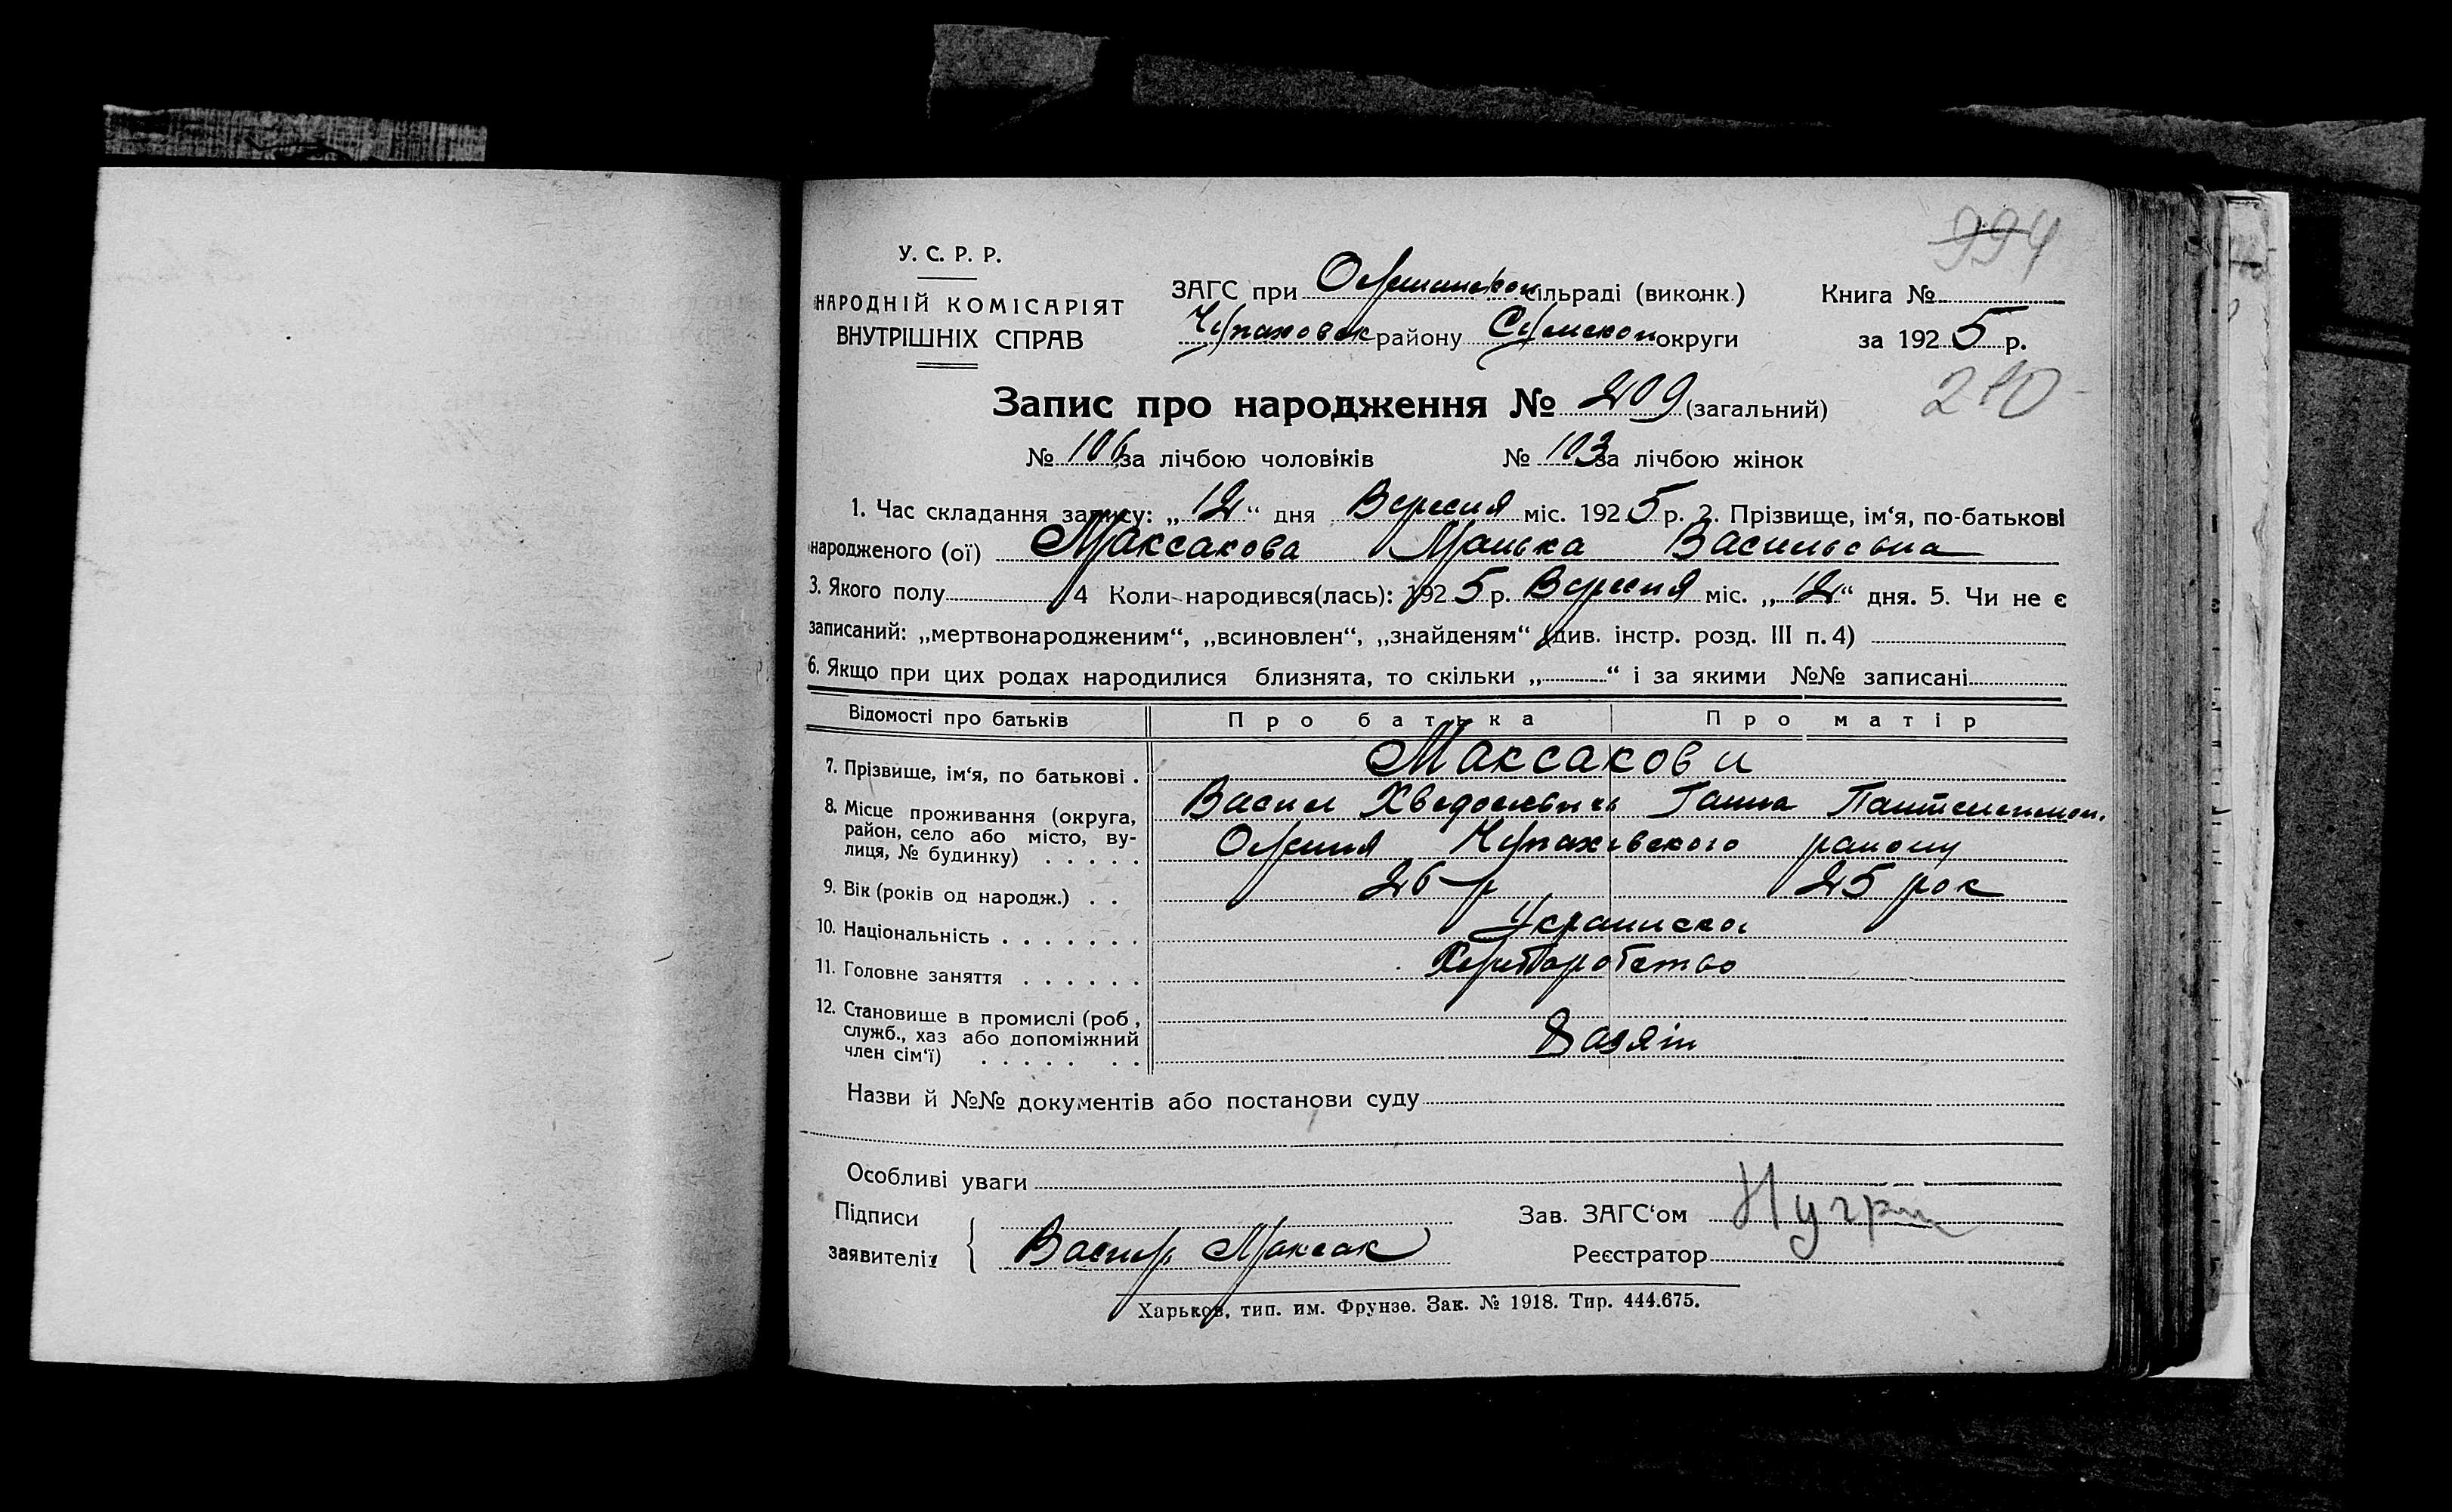 994
У. С. Р. Р.
НАРОДНІЙ КОМІСАРІЯТ
ВНУТРІШНІХ СПРАВ
ЗАГС при сільраді (виконк.)
Книга №
району Сумскои округи
за 1925 р.
Запис про народження № 209 (загальний)
210
№ 106 за лічбою чоловіків № 103 за лічбою жінок
1. Час складання запису: „12“ дня Вересня міс. 1925 р. 2. Прізвище, ім‘я, по-батькові
народженого (ої) Максакова Манька Васильевна
3. Якого полу 4 Коли народився(лась): 1925 р. Вересня міс. „12“ дня. 5. Чи не є
записаний: „мертвонародженим“, „всиновлен“, „знайденям“ (див. інстр. розд. III п. 4)
6. Якщо при цих родах народилися близнята, то скільки „ “ і за якими №№ записані
Відомості про батьків Про батька Про матір
7. Прізвище, ім‘я, по батькові . Максакови
Васил Ганна
8. Місце проживання (округа,
район, село або місто, ву-
лиця, № будинку) . . . . . району
9. Вік (років од народж.) . . 26 р 25 рок
10. Національність . . . . . . .
11. Головне заняття . . . . . .
12. Становище в промислі (роб.,
служб., хаз або допоміжний
член сім‘ї) . . . . . . . Хазяін
Назви й №№ документів або постанови суду
Особливі уваги
Підписи
заявителів
Василь Максак
Зав. ЗАГС‘ом
Реєстратор
Харьков, тип. им. Фрунзе. Зак. № 1918. Тир. 444.675.